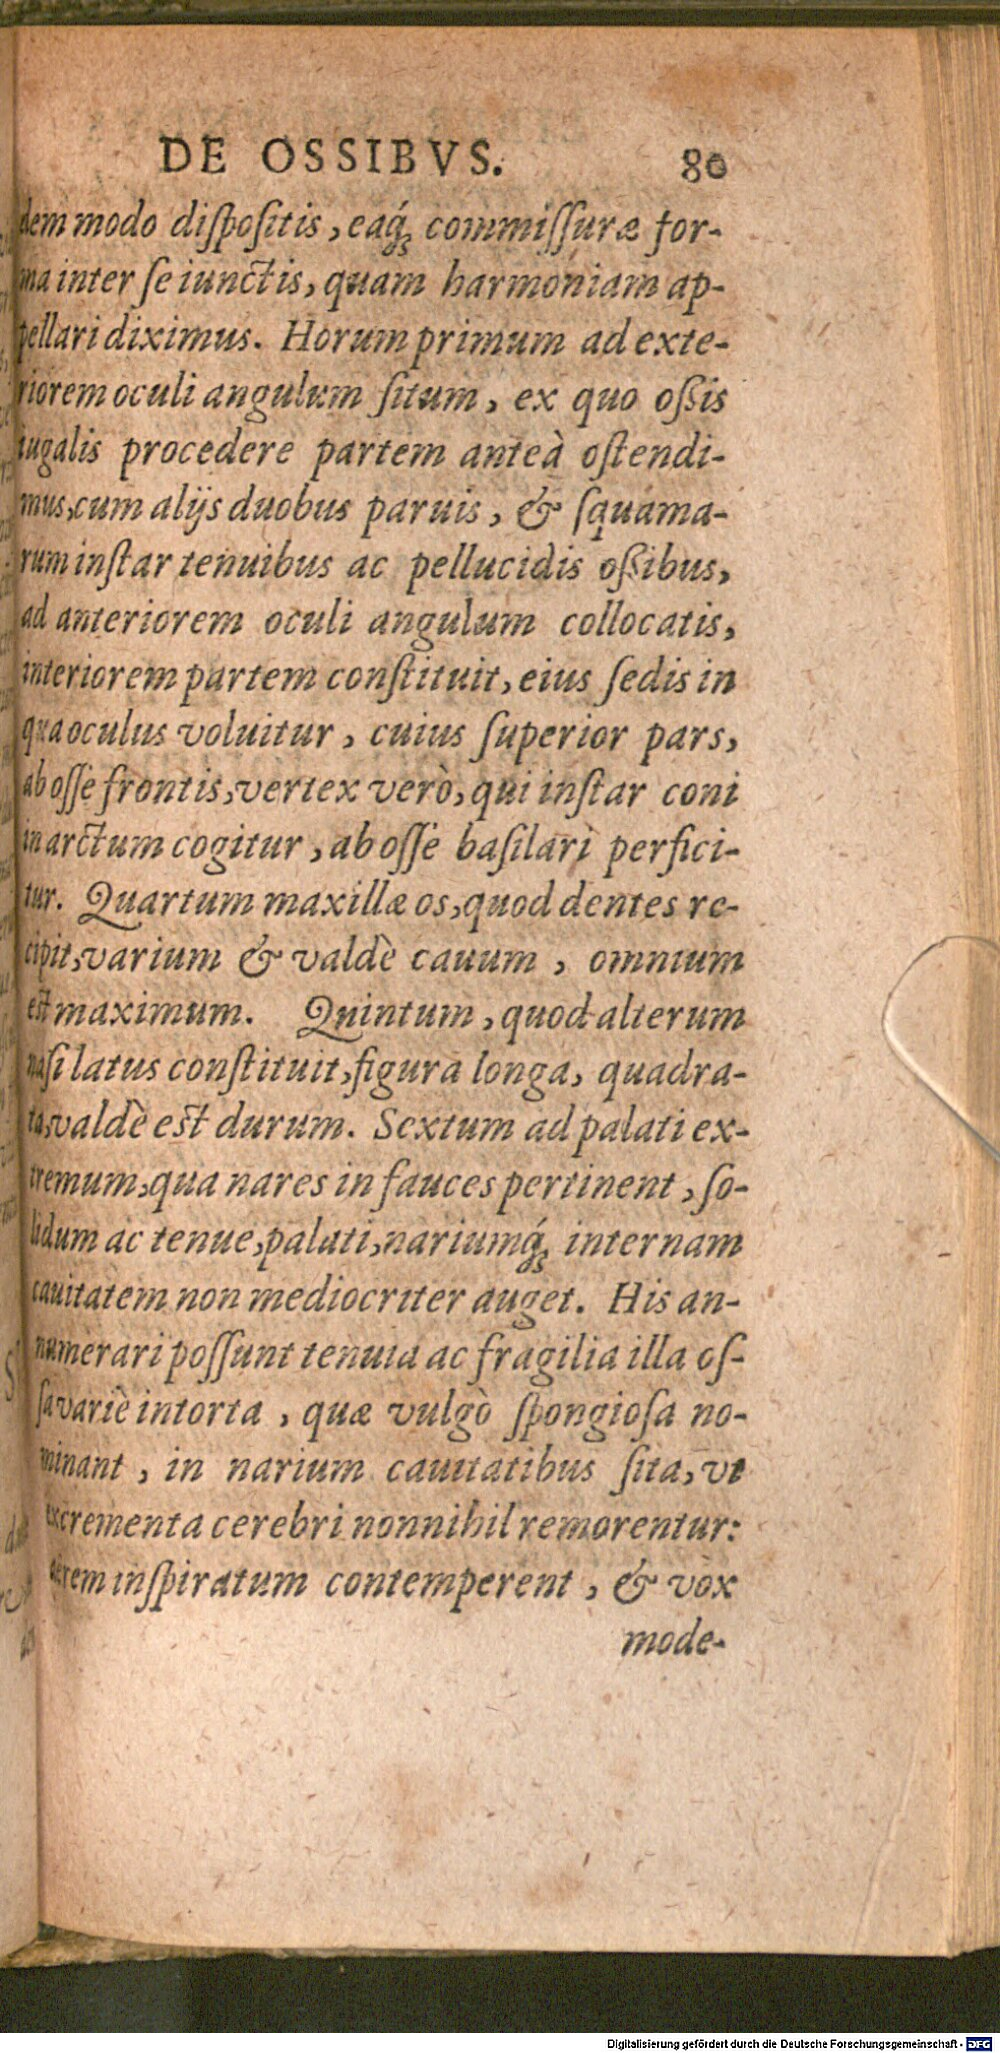 DE OSSIBVS. 80
dem modo diſpoſitis, eaq́ꝫ commiſſuræ for-
ma inter ſe iunctis, quam harmoniam ap-
pellari diximus. Horum primum ad exte-
riorem oculi angulum ſitum, ex quo oßis
iugalis procedere partem anteà oſtendi-
mus, cum alijs duobus paruis, & ſquama-
rum inſtar tenuibus ac pellucidis oßibus,
ad anteriorem oculi angulum collocatis,
interiorem partem conſtituit, eius ſedis in
qua oculus voluitur, cuius ſuperior pars,
ab oſſe frontis, vertex verò, qui inſtar coni
in arctum cogitur, ab oſſe baſilari perfici-
tur. Quartum maxillæ os, quod dentes re-
cipit, varium & valdè cauum, omnium
eſt maximum. Quintum, quod alterum
naſi latus conſtituit, figura longa, quadra-
ta, valdè eſt durum. Sextum ad palati ex-
tremum, qua nares in fauces pertinent, ſo-
lidum ac tenue, palati, nariumq́ꝫ internam
cauitatem non mediocriter auget. His an-
numerari poſſunt tenuia ac fragilia illa oſ-
ſa variè intorta, quæ vulgò ſpongioſa no-
minant, in narium cauitatibus ſita, vt
excrementa cerebri nonnihil remorentur:
aërem inſpiratum contemperent, & vox
mode-
Digitalisierung gefördert durch die Deutsche Forschungsgemeinschaft - DFG